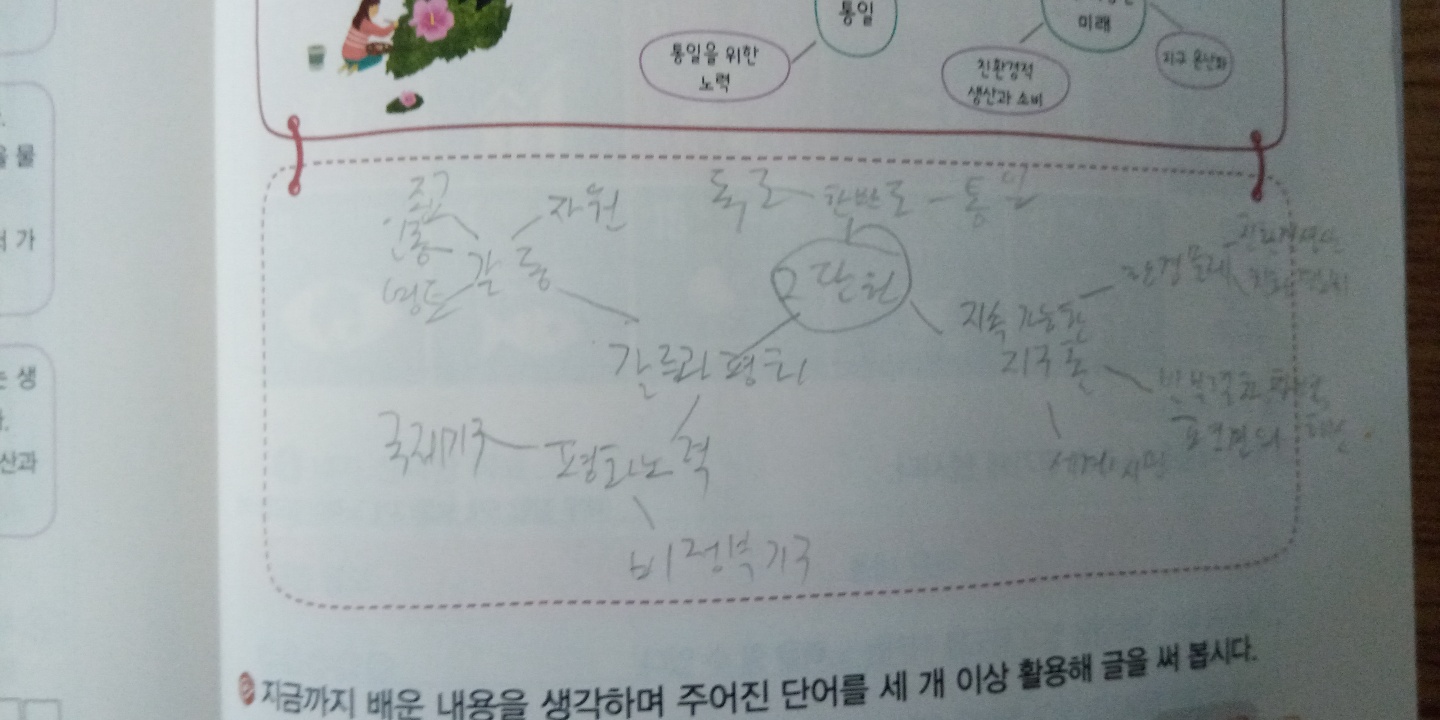 통일
미래
통일을 위한
노력
친환경적
생산과 소비
지구 온난화
물
가
생
산과
종교
인종
영토
자원
갈등
독도
한반도
통일
2단원
갈등과 평화
지속 가능한
지구촌
환경문제
국제기구
평화노력
비정부기구
세계시민
지금까지 배운 내용을 생각하며 주어진 단어를 세 개 이상 활용해 글을 써 봅시다.